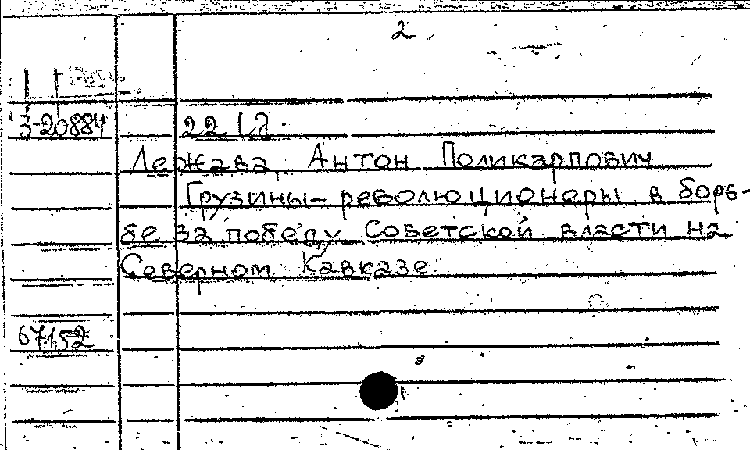 2
3-20884
22 1,2.
Лежава, Антон Поликарпович
Грузины-революционеры в борь-
бе за победу Советской власти на
Северном Кавказе.
67152